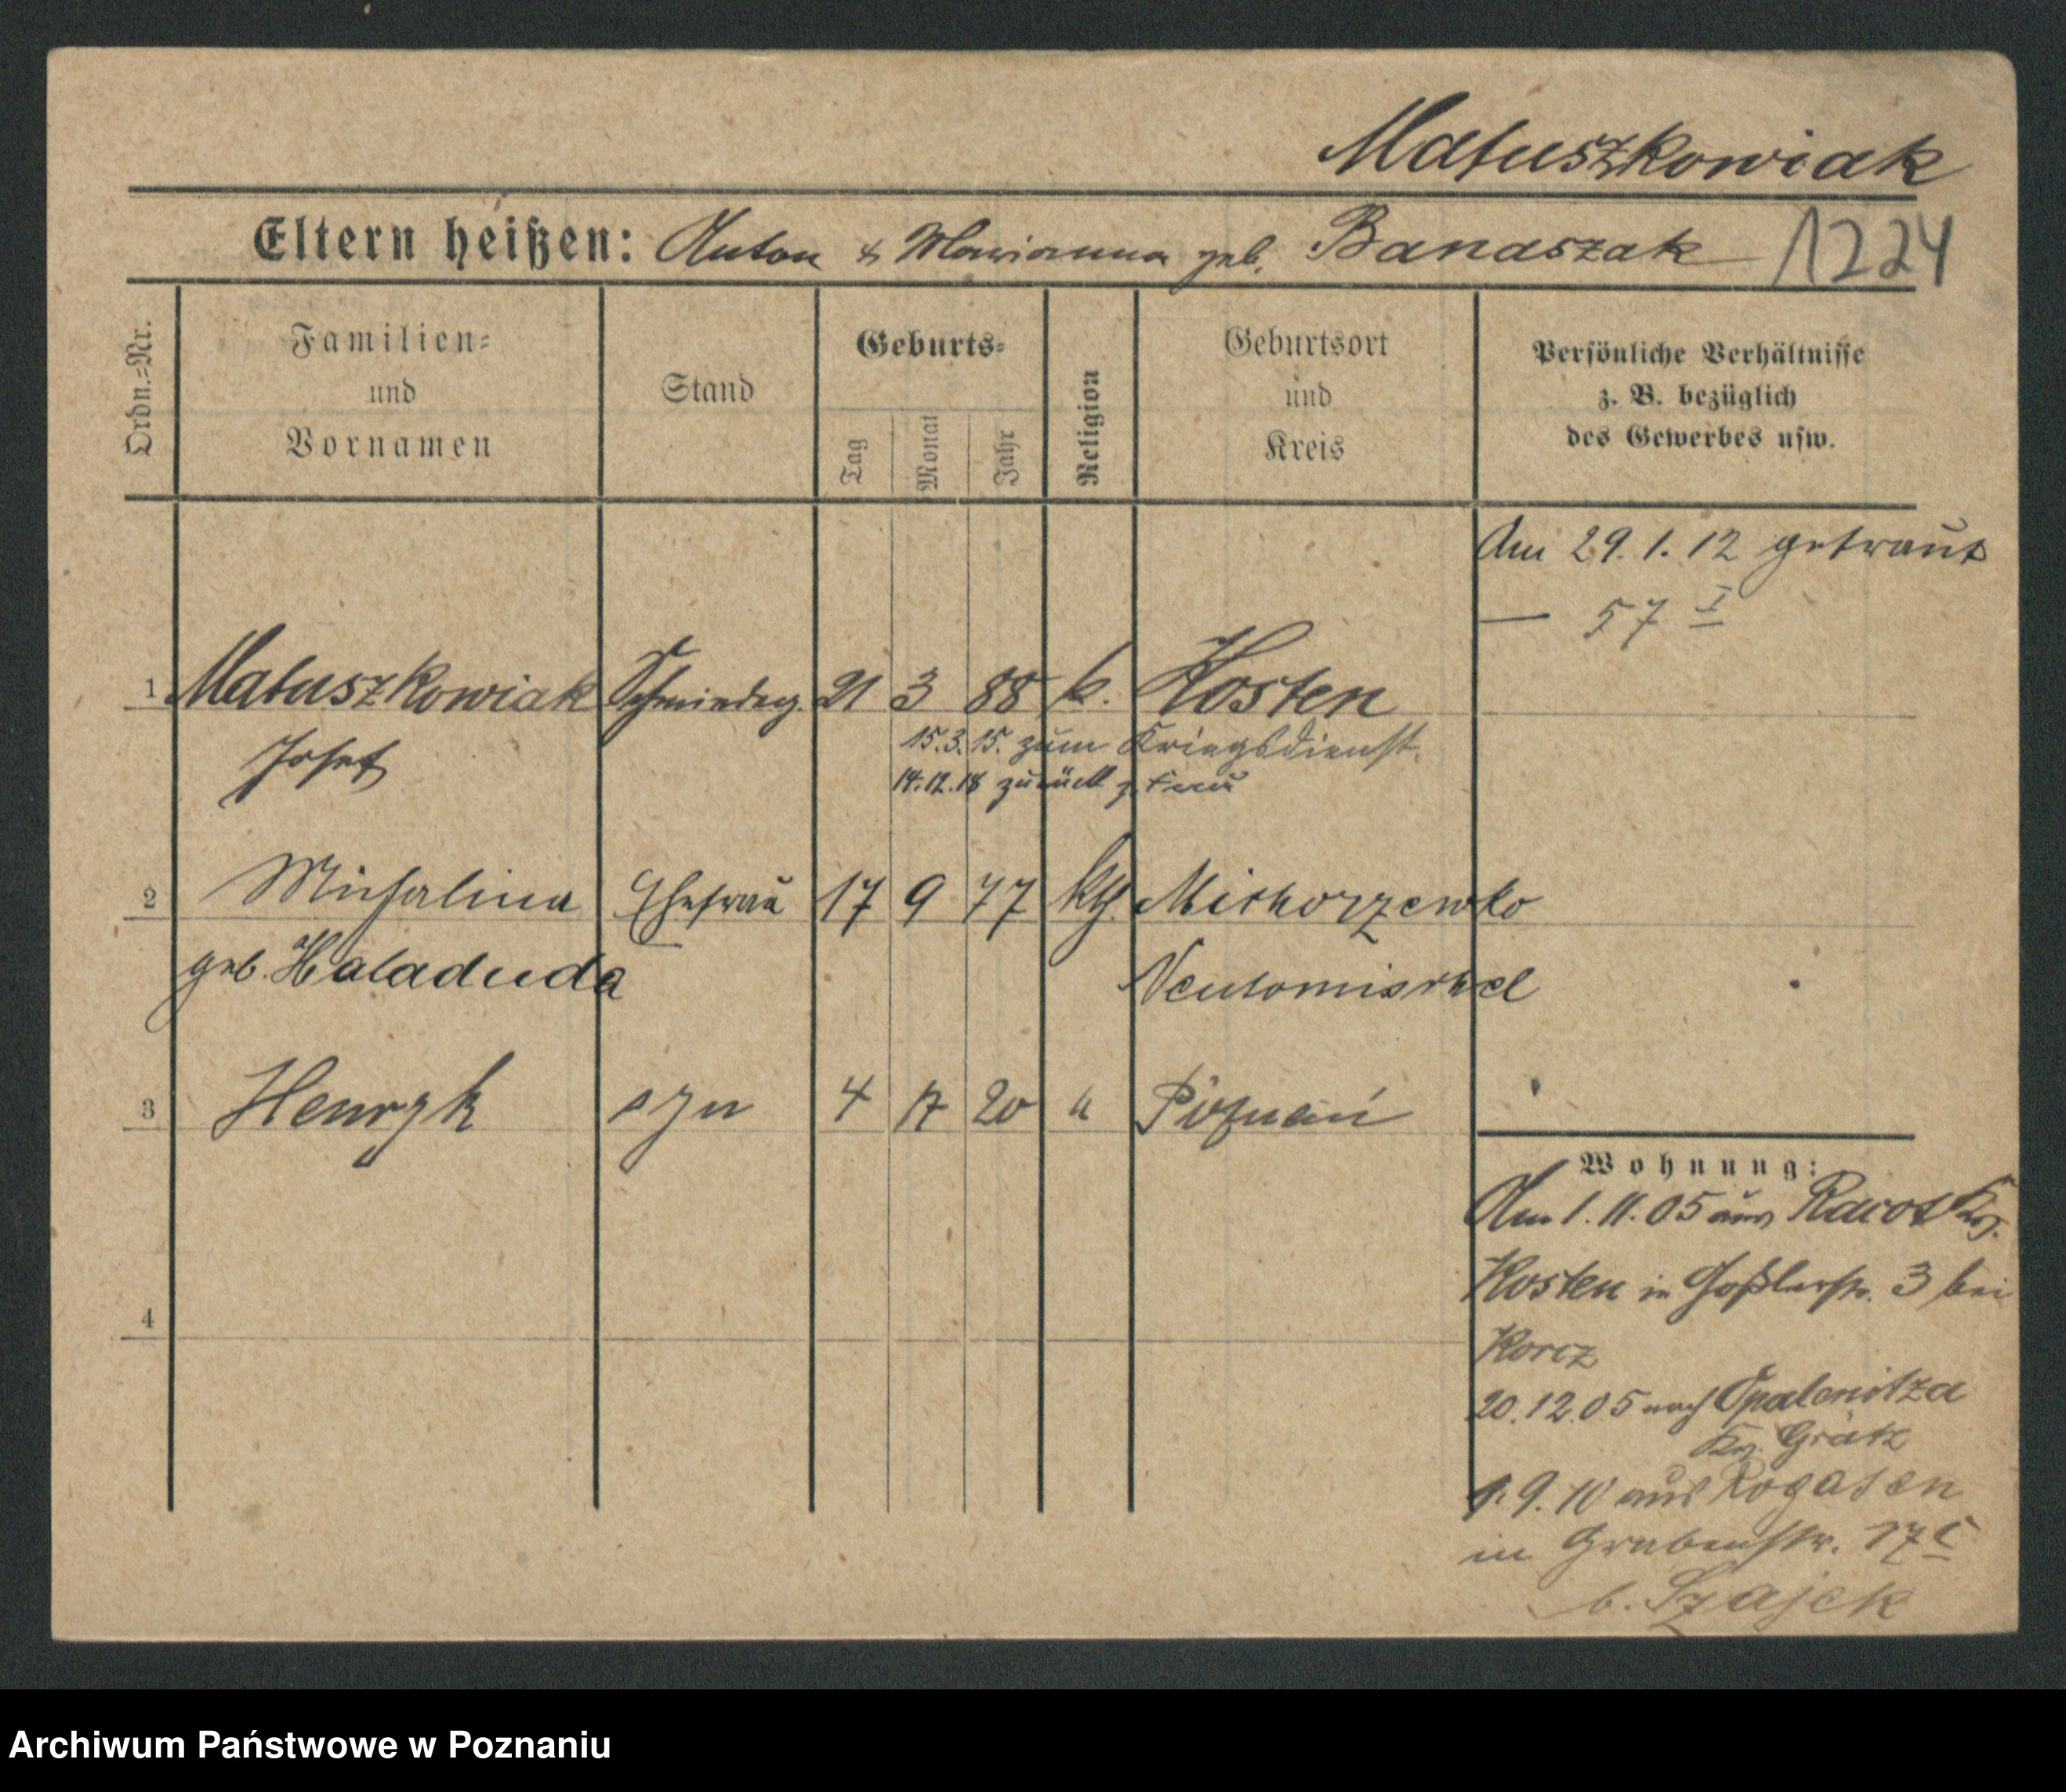 Matuszkowiak
Eltern heißen: Anton & Marianna geb. Banaszak 1224
Ordn.=Nr.
Familien=
und
Vornamen
Stand
Geburts=
Tag
Monat
Jahr
Religion
Geburtsort
und
Kreis
Persönliche Verhältnisse
z. B. bezüglich
des Gewerbes usw.
Am 29. 1. 12 getraut
— 57 I
1 Matuszkowiak Schmiedeg. 21 3 88 k. Kosten
Josef
15.3.15. zum Kriegsdienst.
14.12.18 zurück z. Frau
2 Michalina Ehefrau 17 9 77 kth. Michorzewko
geb. Haladuda Neutomischel
3 Henryk syn 4 20 " Poznań
4
Wohnung:
Am 1. 11. 05 aus Racot Krs.
Kosten in Goßlerstr. 3 bei
Korcz
20.12.05 nach Opalenitza
Kr. Grätz
1. 9. 10 aus Rogasen
in Grabenstr. 17
b. Szajek
Archiwum Państwowe w Poznaniu